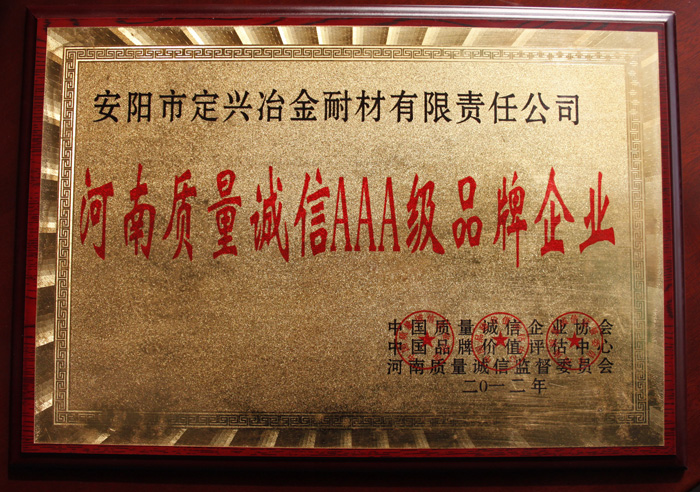 安阳市定兴冶金耐材有限责任公司
河南质量诚信AAA级品牌企业
中国质量诚信企业协会
中国品牌价值评估中心
河南质量诚信监督委员会
二〇一二年